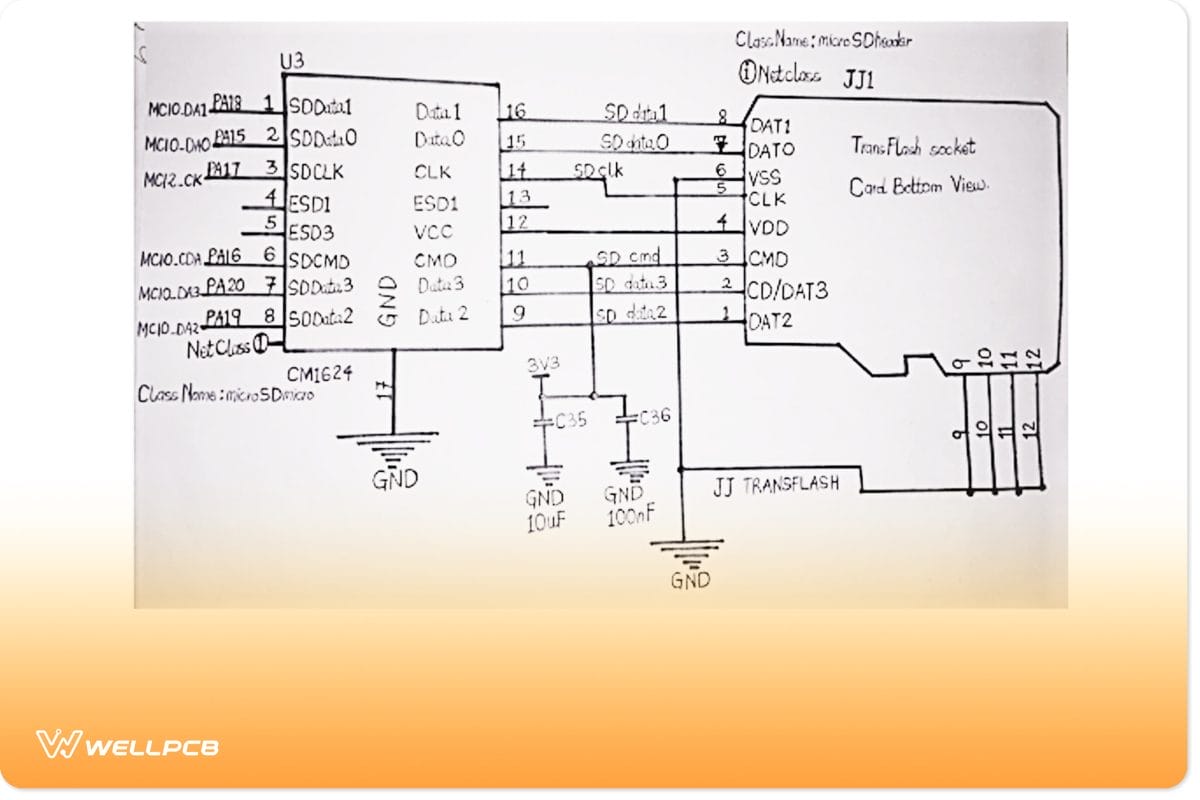 ClassName: microSDheader
① Netclass JJ1
U3
MCIO_DA1 PA18 1 SDData1 Data1 16 SD data1 8 DAT1
MCIO_DAO PA15 2 SDData0 Data0 15 SD data0 7 DAT0
TransFlash socket
MCI2_CK PA17 3 SDCLK CLK 14 SDclk 6 VSS
Card Bottom View.
5 CLK
4 ESD1 ESD1 13
5 ESD3 VCC 12 4 VDD
MCIO_CDA PA16 6 SDCMD CMD 11 SD cmd 3 CMD
MCIO_DA3 PA20 7 SDData3 Data3 10 SD data3 2 CD/DAT3
MCIO_DA2 PA19 8 SDData2 GND Data2 9 SD data2 1 DAT2
NetClass ①
CM1624
ClassName: microSDmicro
17
GND
3V3
C35 C36
GND GND
10uF 100nF
9 10 11 12
9 10 11 12
JJ TRANSFLASH
GND
WELLPCB